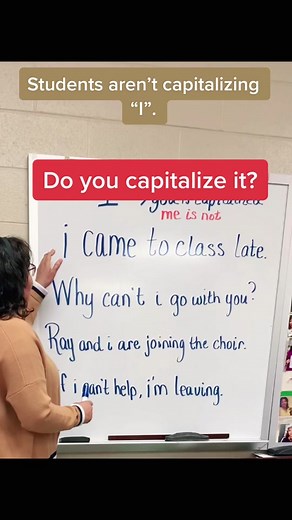 Students aren't capitalizing
"I".
Do you capitalize it?
me is not
i came to class late.
Why can't i go with you?
Ray and i are joining the choir.
i can't help, i'm leaving.